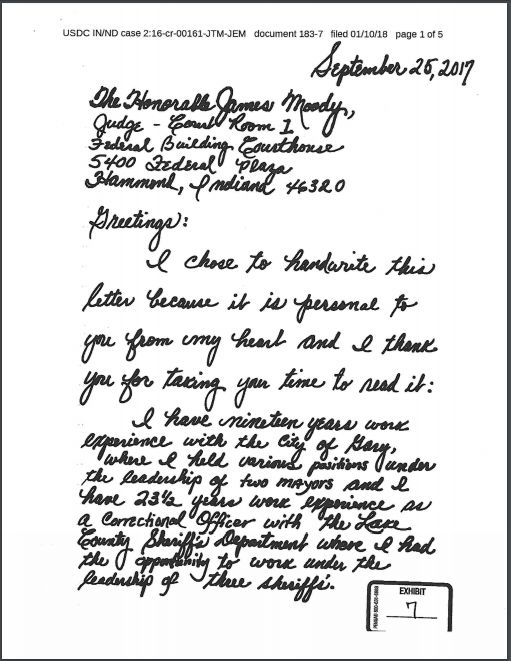 USDC IN/ND case 2:16-cr-00161-JTM-JEM document 183-7 filed 01/10/18 page 1 of 5
September 25, 2017
The Honorable James Moody,
Judge - Court Room 1
Federal Building Courthouse
5400 Federal Plaza
Hammond, Indiana 46320
Greetings:
I chose to handwrite this
letter because it is personal to
you from my heart and I thank
you for taking your time to read it:
I have nineteen years work
experience with the City of Gary,
where I held various positions under
the leadership of two mayors and I
have 23½ years work experience as
a Correctional Officer with the Lake
County Sheriff's Department where I had
the opportunity to work under the
leadership of three sheriffs'.
EXHIBIT
7